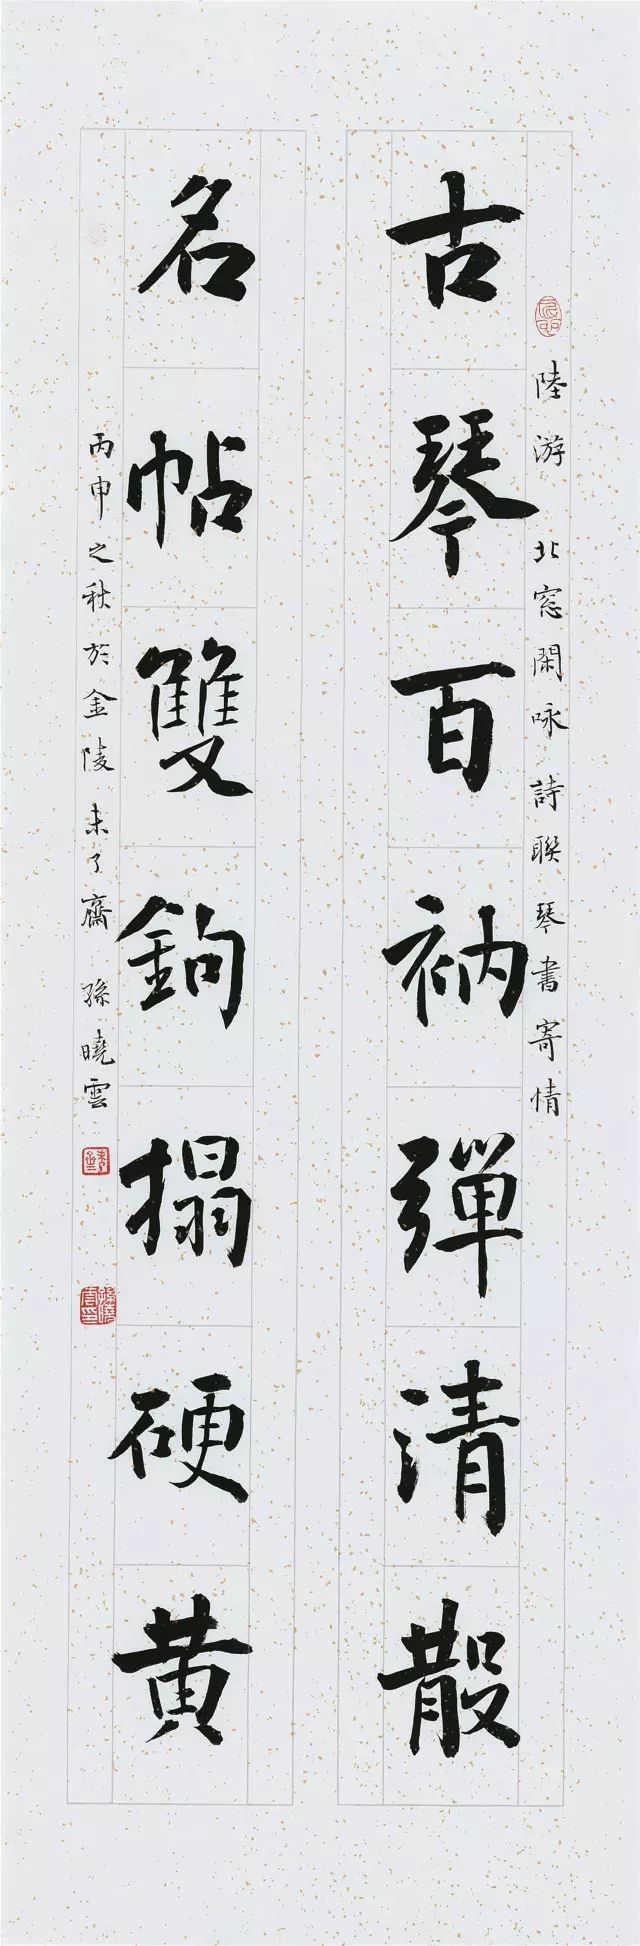 陸游 北窓閑咏 詩聯 琴書寄情
古琴百衲彈清散
名帖雙鉤搨硬黄
丙申之秋於金陵未了齋 孫曉雲